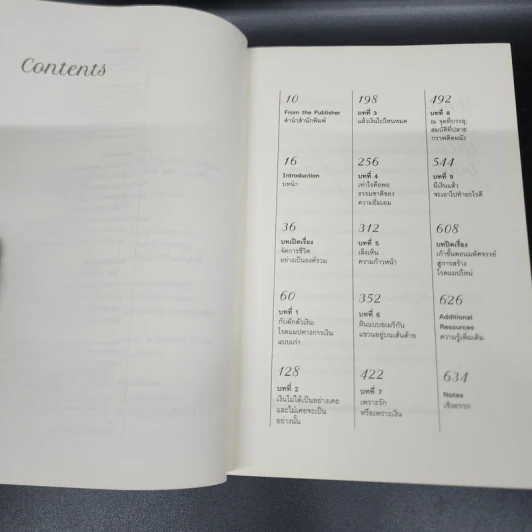 Contents
10
From the Publisher
คำนำสำนักพิมพ์
16
Introduction
บทนำ
36
บทเปิดเรื่อง
จัดการชีวิต
อย่างเป็นองค์รวม
60
บทที่ 1
กับดักตัวเงิน:
โรดแมปทางการเงิน
แบบเก่า
128
บทที่ 2
เงินไม่ได้เป็นอย่างเคย
และไม่เคยจะเป็น
อย่างนั้น
198
บทที่ 3
แล้วเงินไปไหนหมด
256
บทที่ 4
เท่าไรถึงพอ
ธรรมชาติของ
ความอิ่มเอม
312
บทที่ 5
เล็งเห็น
ความก้าวหน้า
352
บทที่ 6
ฝันแบบอเมริกัน
แขวนอยู่บนเส้นด้าย
422
บทที่ 7
เพราะรัก
หรือเพราะเงิน
492
บทที่ 8
ณ จุดที่บรรลุ:
สมบัติที่ปลาย
กราฟติดผนัง
544
บทที่ 9
มีเงินแล้ว
จะเอาไปทำอะไรดี
608
บทปิดเรื่อง
เก้าขั้นตอนมหัศจรรย์
สู่การสร้าง
โรดแมปใหม่
626
Additional
Resources
ความรู้เพิ่มเติม
634
Notes
เชิงอรรถ